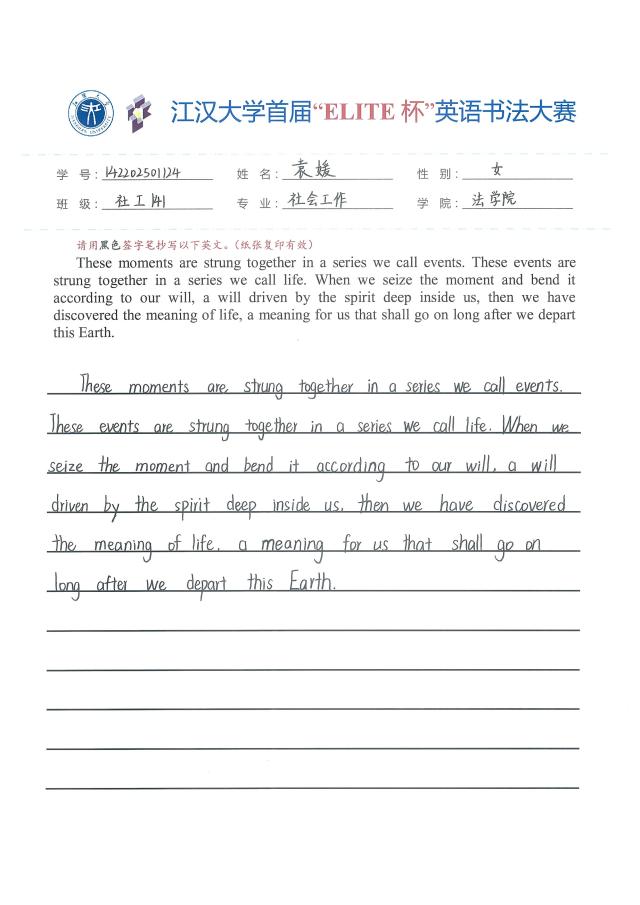 江汉大学首届“ELITE 杯”英语书法大赛
学 号：142202501124 姓 名：袁媛 性 别：女
班 级：社工141 专 业：社会工作 学 院：法学院
请用黑色签字笔抄写以下英文。（纸张复印有效）
These moments are strung together in a series we call events. These events are
strung together in a series we call life. When we seize the moment and bend it
according to our will, a will driven by the spirit deep inside us, then we have
discovered the meaning of life, a meaning for us that shall go on long after we depart
this Earth.
These moments are strung together in a series we call events.
These events are strung together in a series we call life. When we
seize the moment and bend it according to our will, a will
driven by the spirit deep inside us, then we have discovered
the meaning of life, a meaning for us that shall go on
long after we depart this Earth.